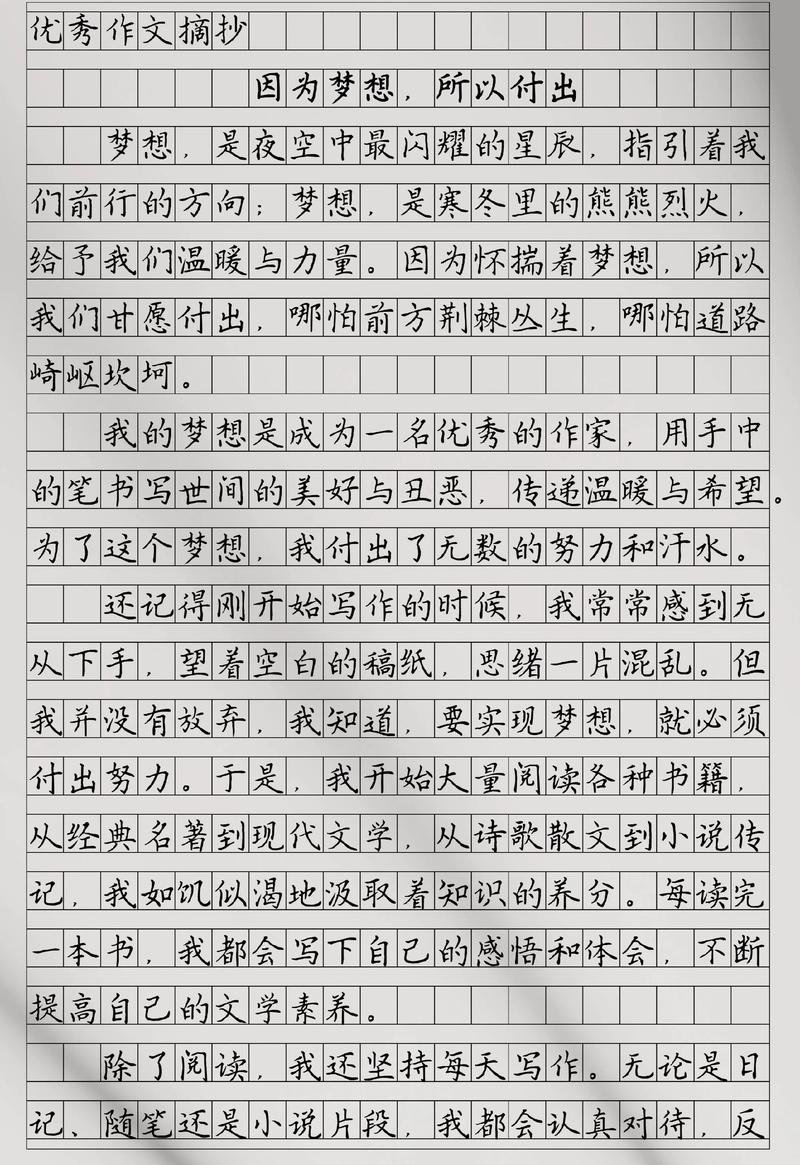 优秀作文摘抄
因为梦想，所以付出
梦想，是夜空中最闪耀的星辰，指引着我
们前行的方向；梦想，是寒冬里的熊熊烈火，
给予我们温暖与力量。因为怀揣着梦想，所以
我们甘愿付出，哪怕前方荆棘丛生，哪怕道路
崎岖坎坷。
我的梦想是成为一名优秀的作家，用手中
的笔书写世间的美好与丑恶，传递温暖与希望。
为了这个梦想，我付出了无数的努力和汗水。
还记得刚开始写作的时候，我常常感到无
从下手，望着空白的稿纸，思绪一片混乱。但
我并没有放弃，我知道，要实现梦想，就必须
付出努力。于是，我开始大量阅读各种书籍，
从经典名著到现代文学，从诗歌散文到小说传
记，我如饥似渴地汲取着知识的养分。每读完
一本书，我都会写下自己的感悟和体会，不断
提高自己的文学素养。
除了阅读，我还坚持每天写作。无论是日
记、随笔还是小说片段，我都会认真对待，反